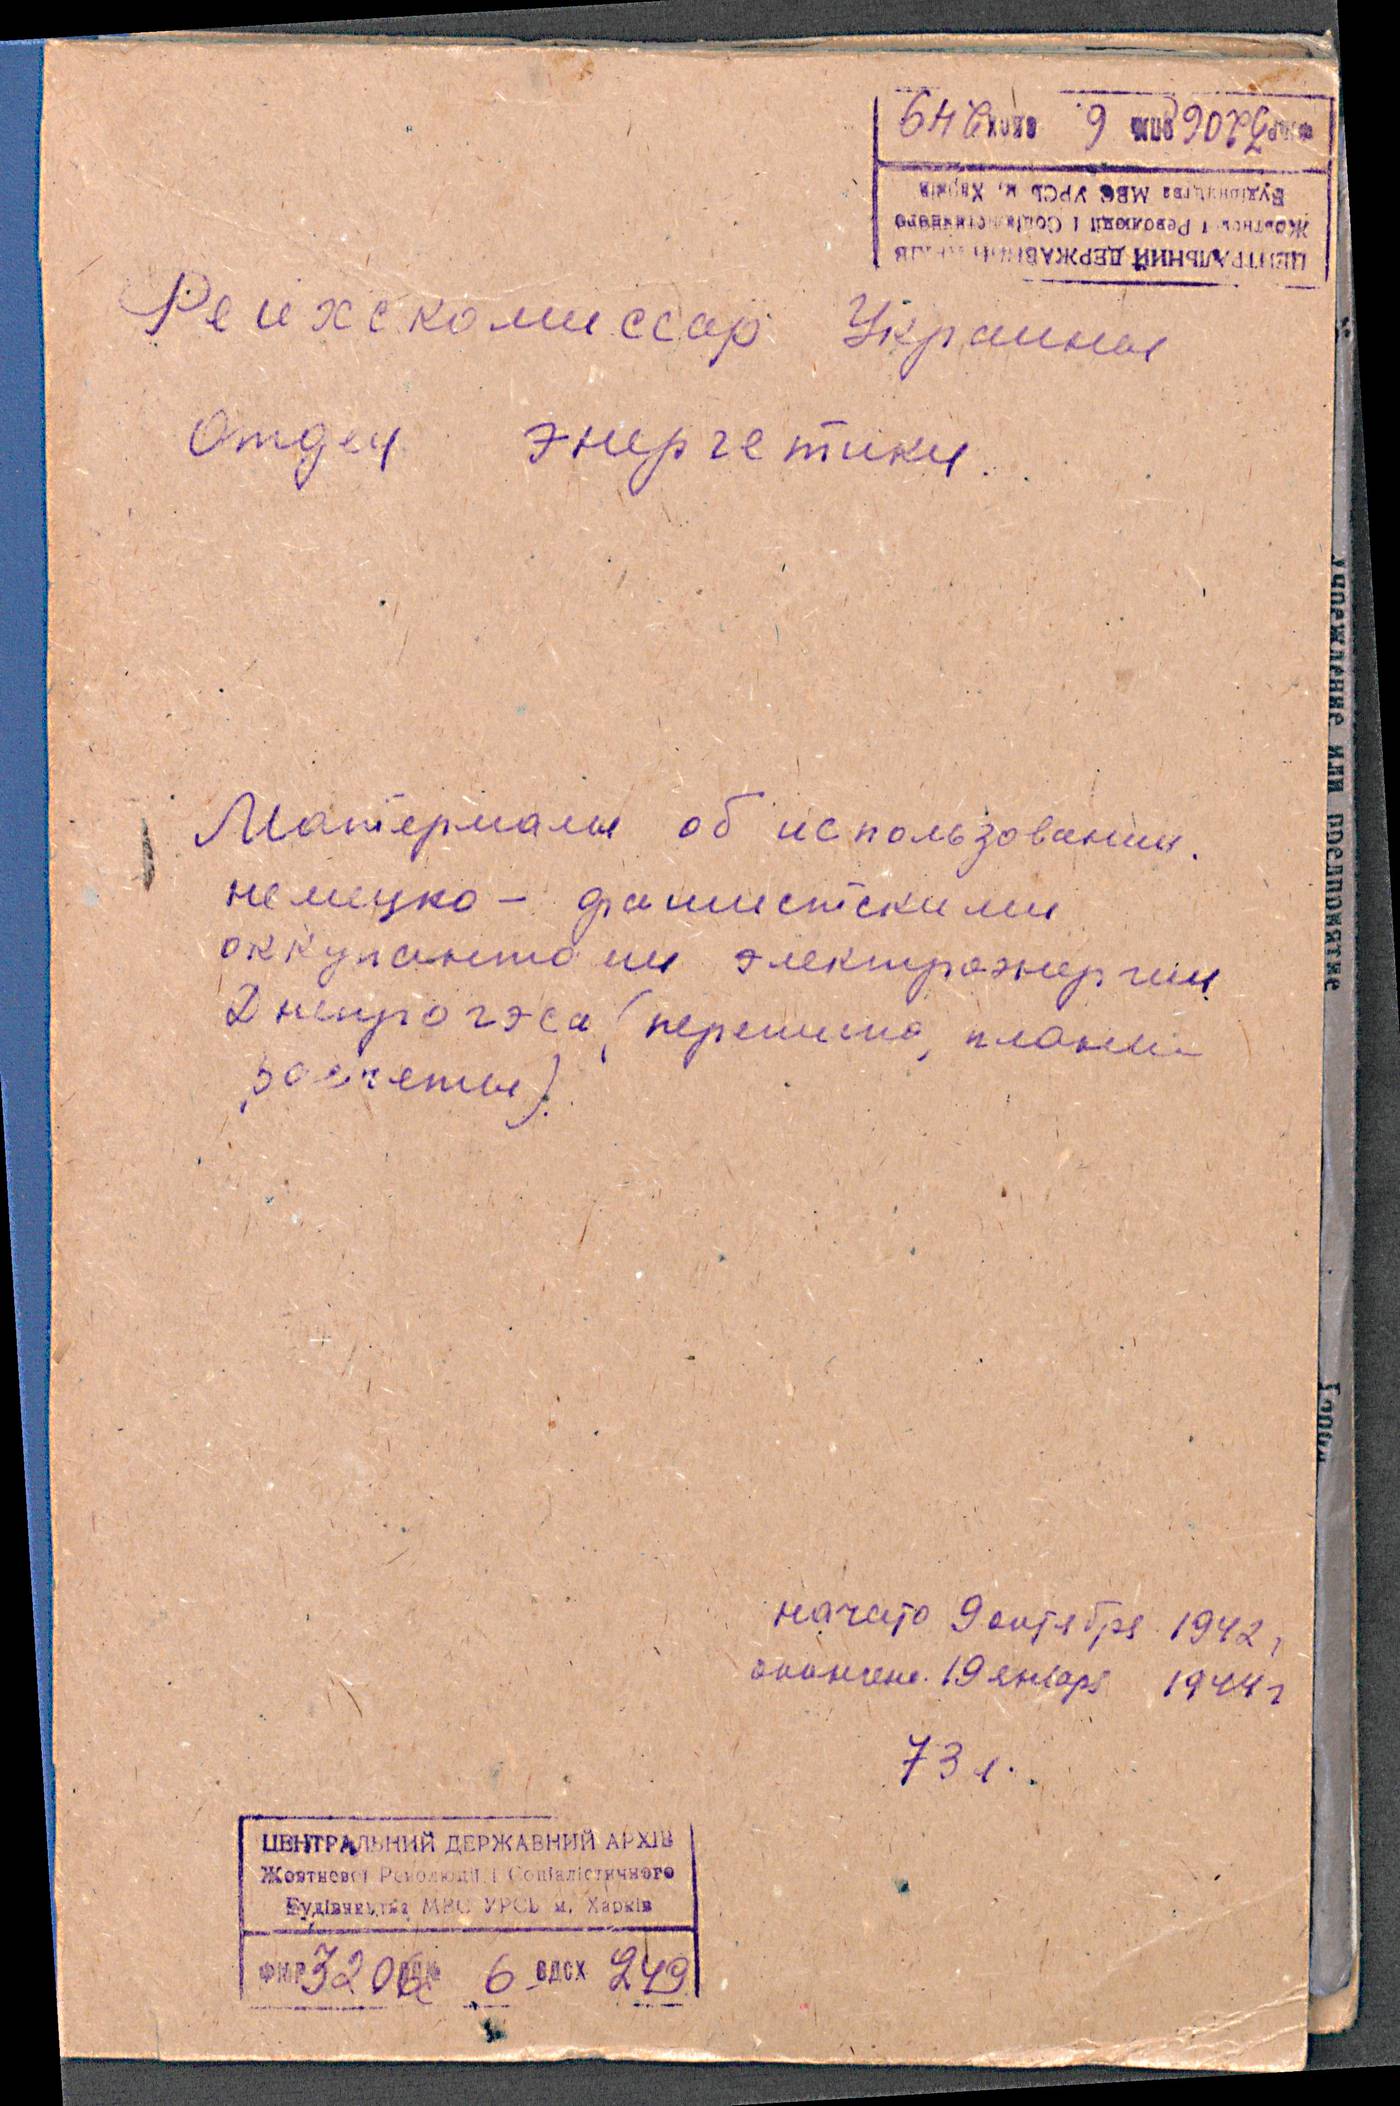 ЦЕНТРАЛЬНИЙ ДЕРЖАВНИЙ АРХІВ
Жовтневої Революції і Соціалістичного
Будівництва МВС УРСР м. Харків
ФНР 3206 ОПИС 6 ОДСХ 249
Рейхскомиссар Украины
Отдел энергетики.
Материалы об использовании
немецко - фашистскими
оккупантами электроэнергии
Днепрогэса (переписка, планы
расчеты).
начато 9 октября 1942 г
окончено. 19 января 1944 г
73 л.
ЦЕНТРАЛЬНИЙ ДЕРЖАВНИЙ АРХІВ
Жовтневої Революції і Соціалістичного
Будівництва МВС УРСР м. Харків
ФНР 3206 6 ОДСХ 249
учреждение или предприятие